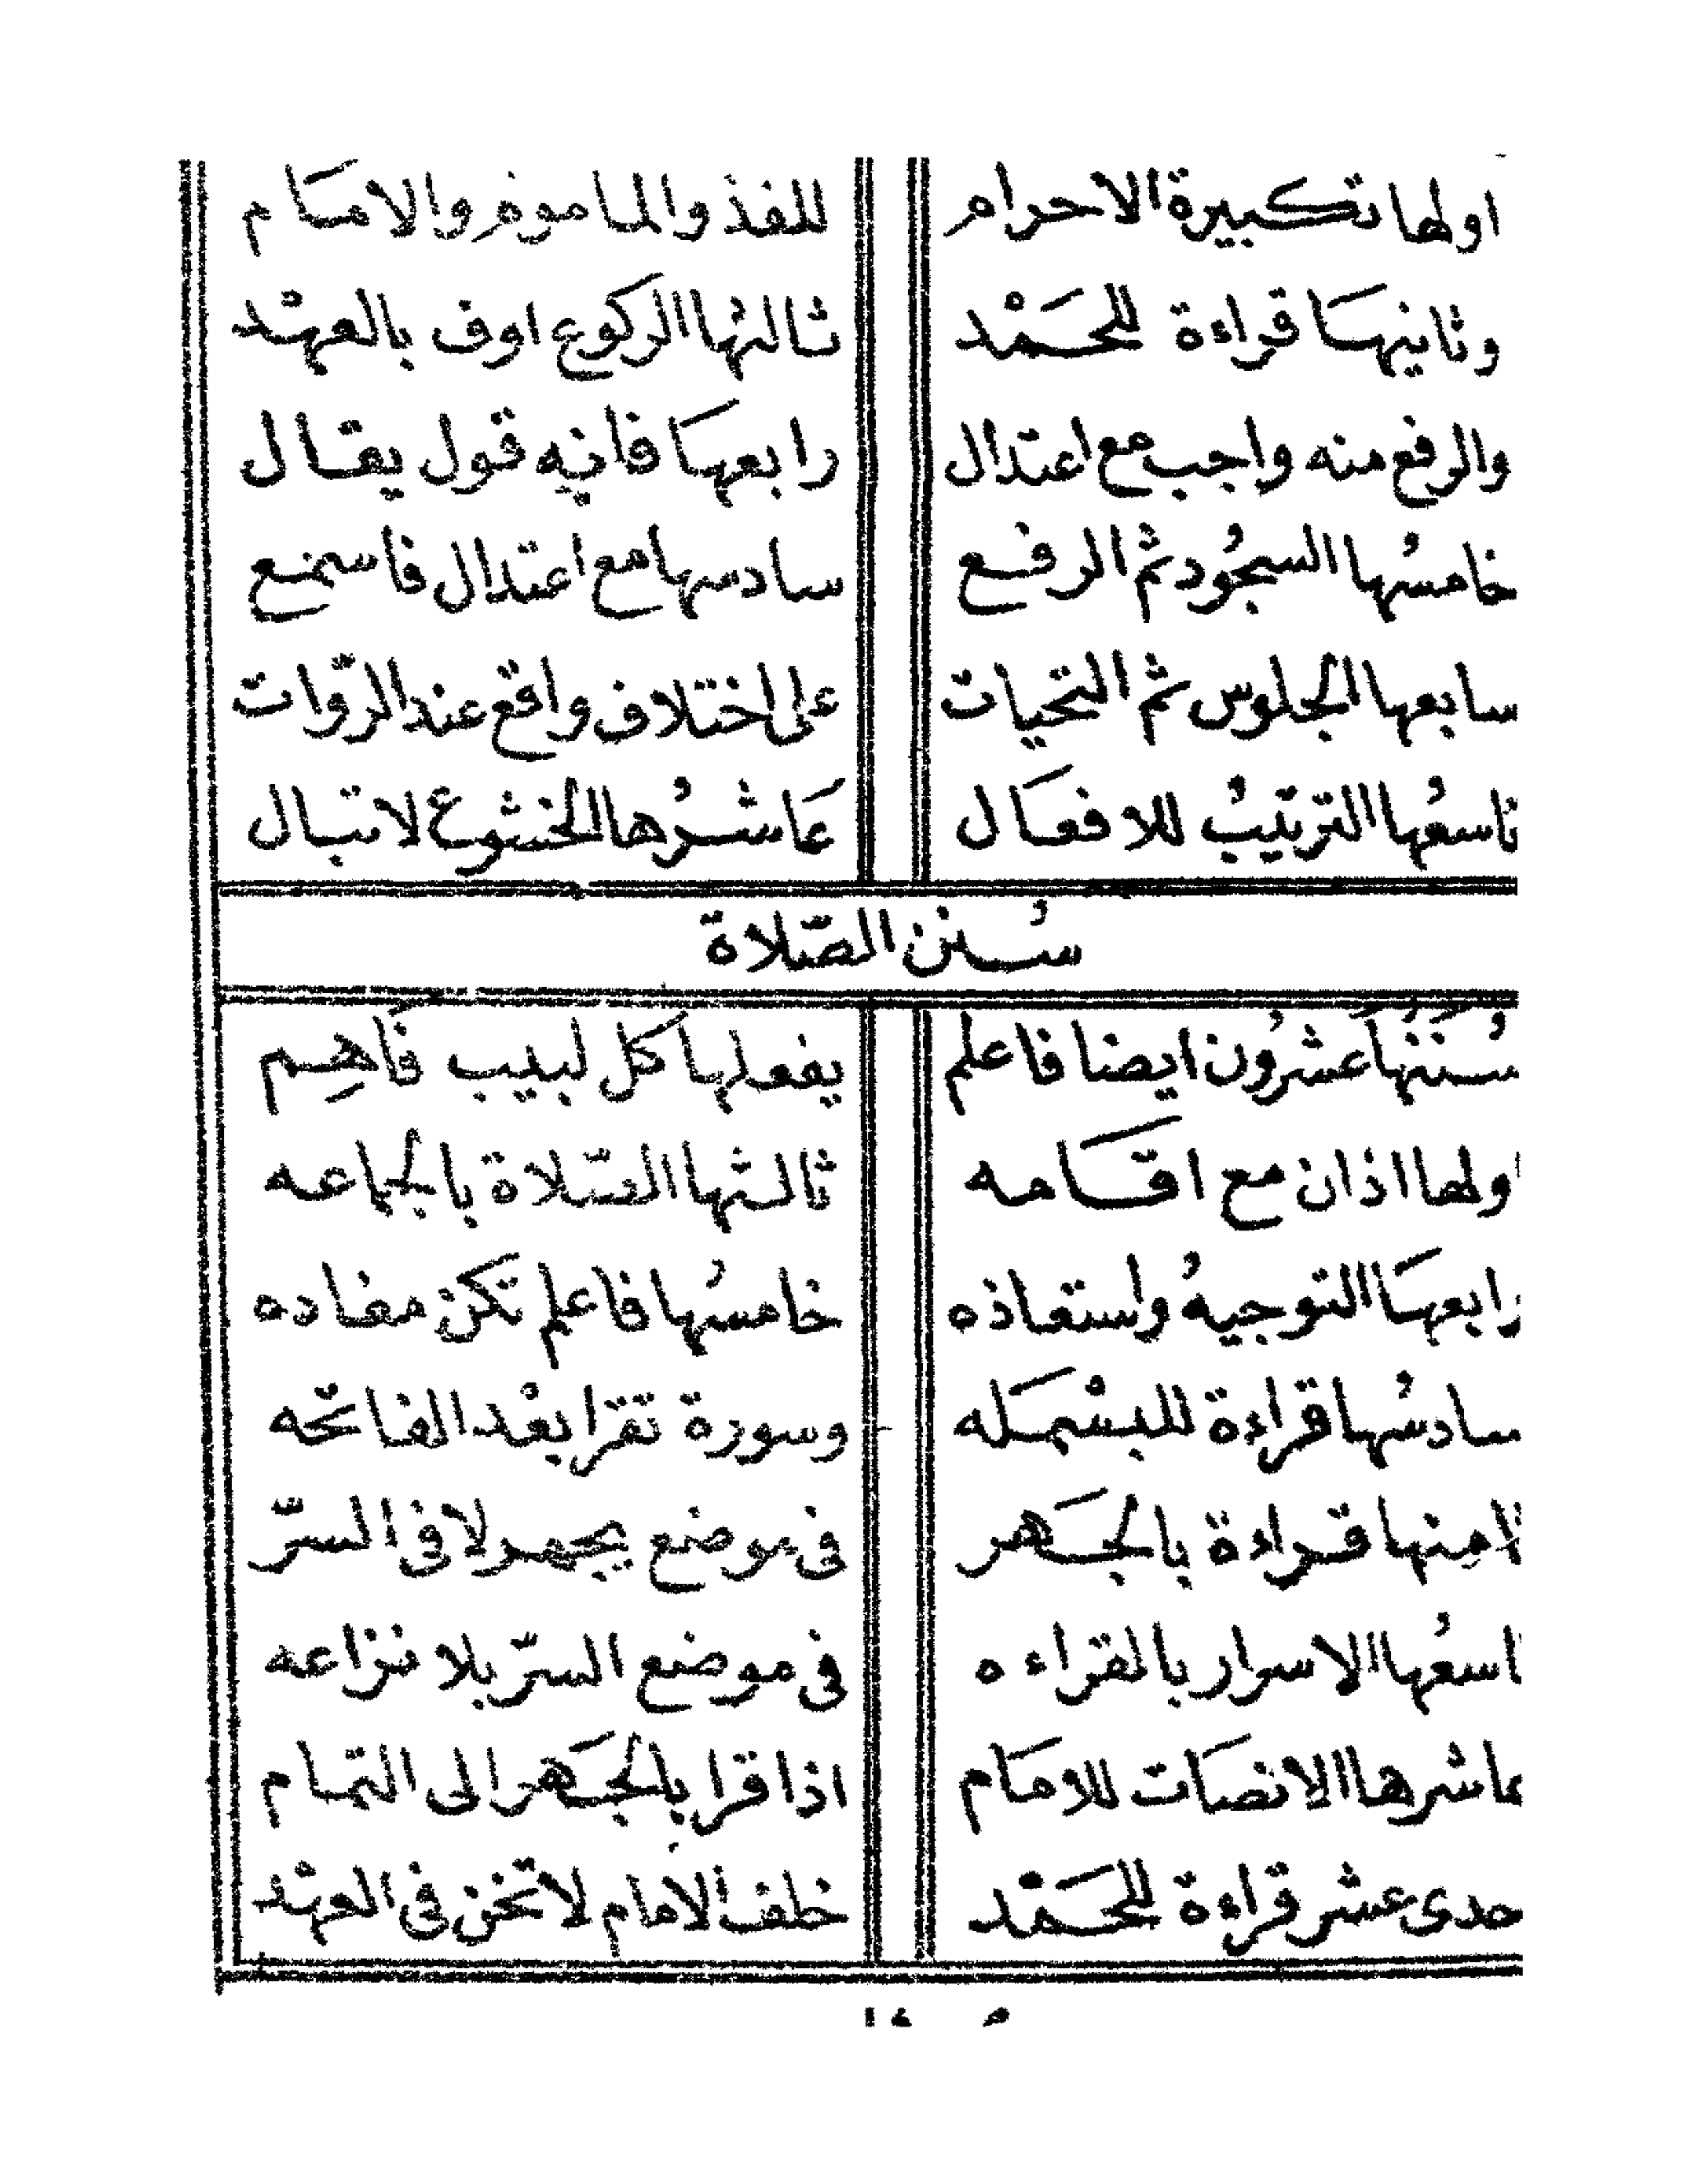 اولها تكبيرة الاحرام للفذ والماموم والامام
وثانيها قراءة للحمْد ثالثها الركوع اوف بالعهْد
والرفع منه واجب مع اعتدال رابعها فانه قول يقال
خامسُها السجُود ثم الرفع سادسها مع اعتدال فاسمع
سابعها الجلوس ثم التحيات على اختلاف واقع عند الرّوات
تاسعُها الترتيبُ للافعال عَاشرُها الخشوع لاتبال
سُنن الصّلاة
سُننُها عشرُون ايضا فاعلم يفعلها كل لبيب فَاهِم
اولها اذان مع اقامه ثالثها الصّلاة بالجماعه
رابعها التوجيهُ واستعاذه خامسُها فاعلم تكن مفاده
سادسُها قراءة للبسْمَله وسورة تقرا بعْد الفاتحه
ثامِنها قراءة بالجَهر فى موضع يجهر لا فى السرّ
اسعُها الاسرار بالقراءه فى موضع السرّ بلا نزاعه
عاشرها الانصَات للامَام اذا قرا بالجَهر الى التمام
حدى عشر قراءة للحَمْد خلف الامام لا تخن فى العهْد